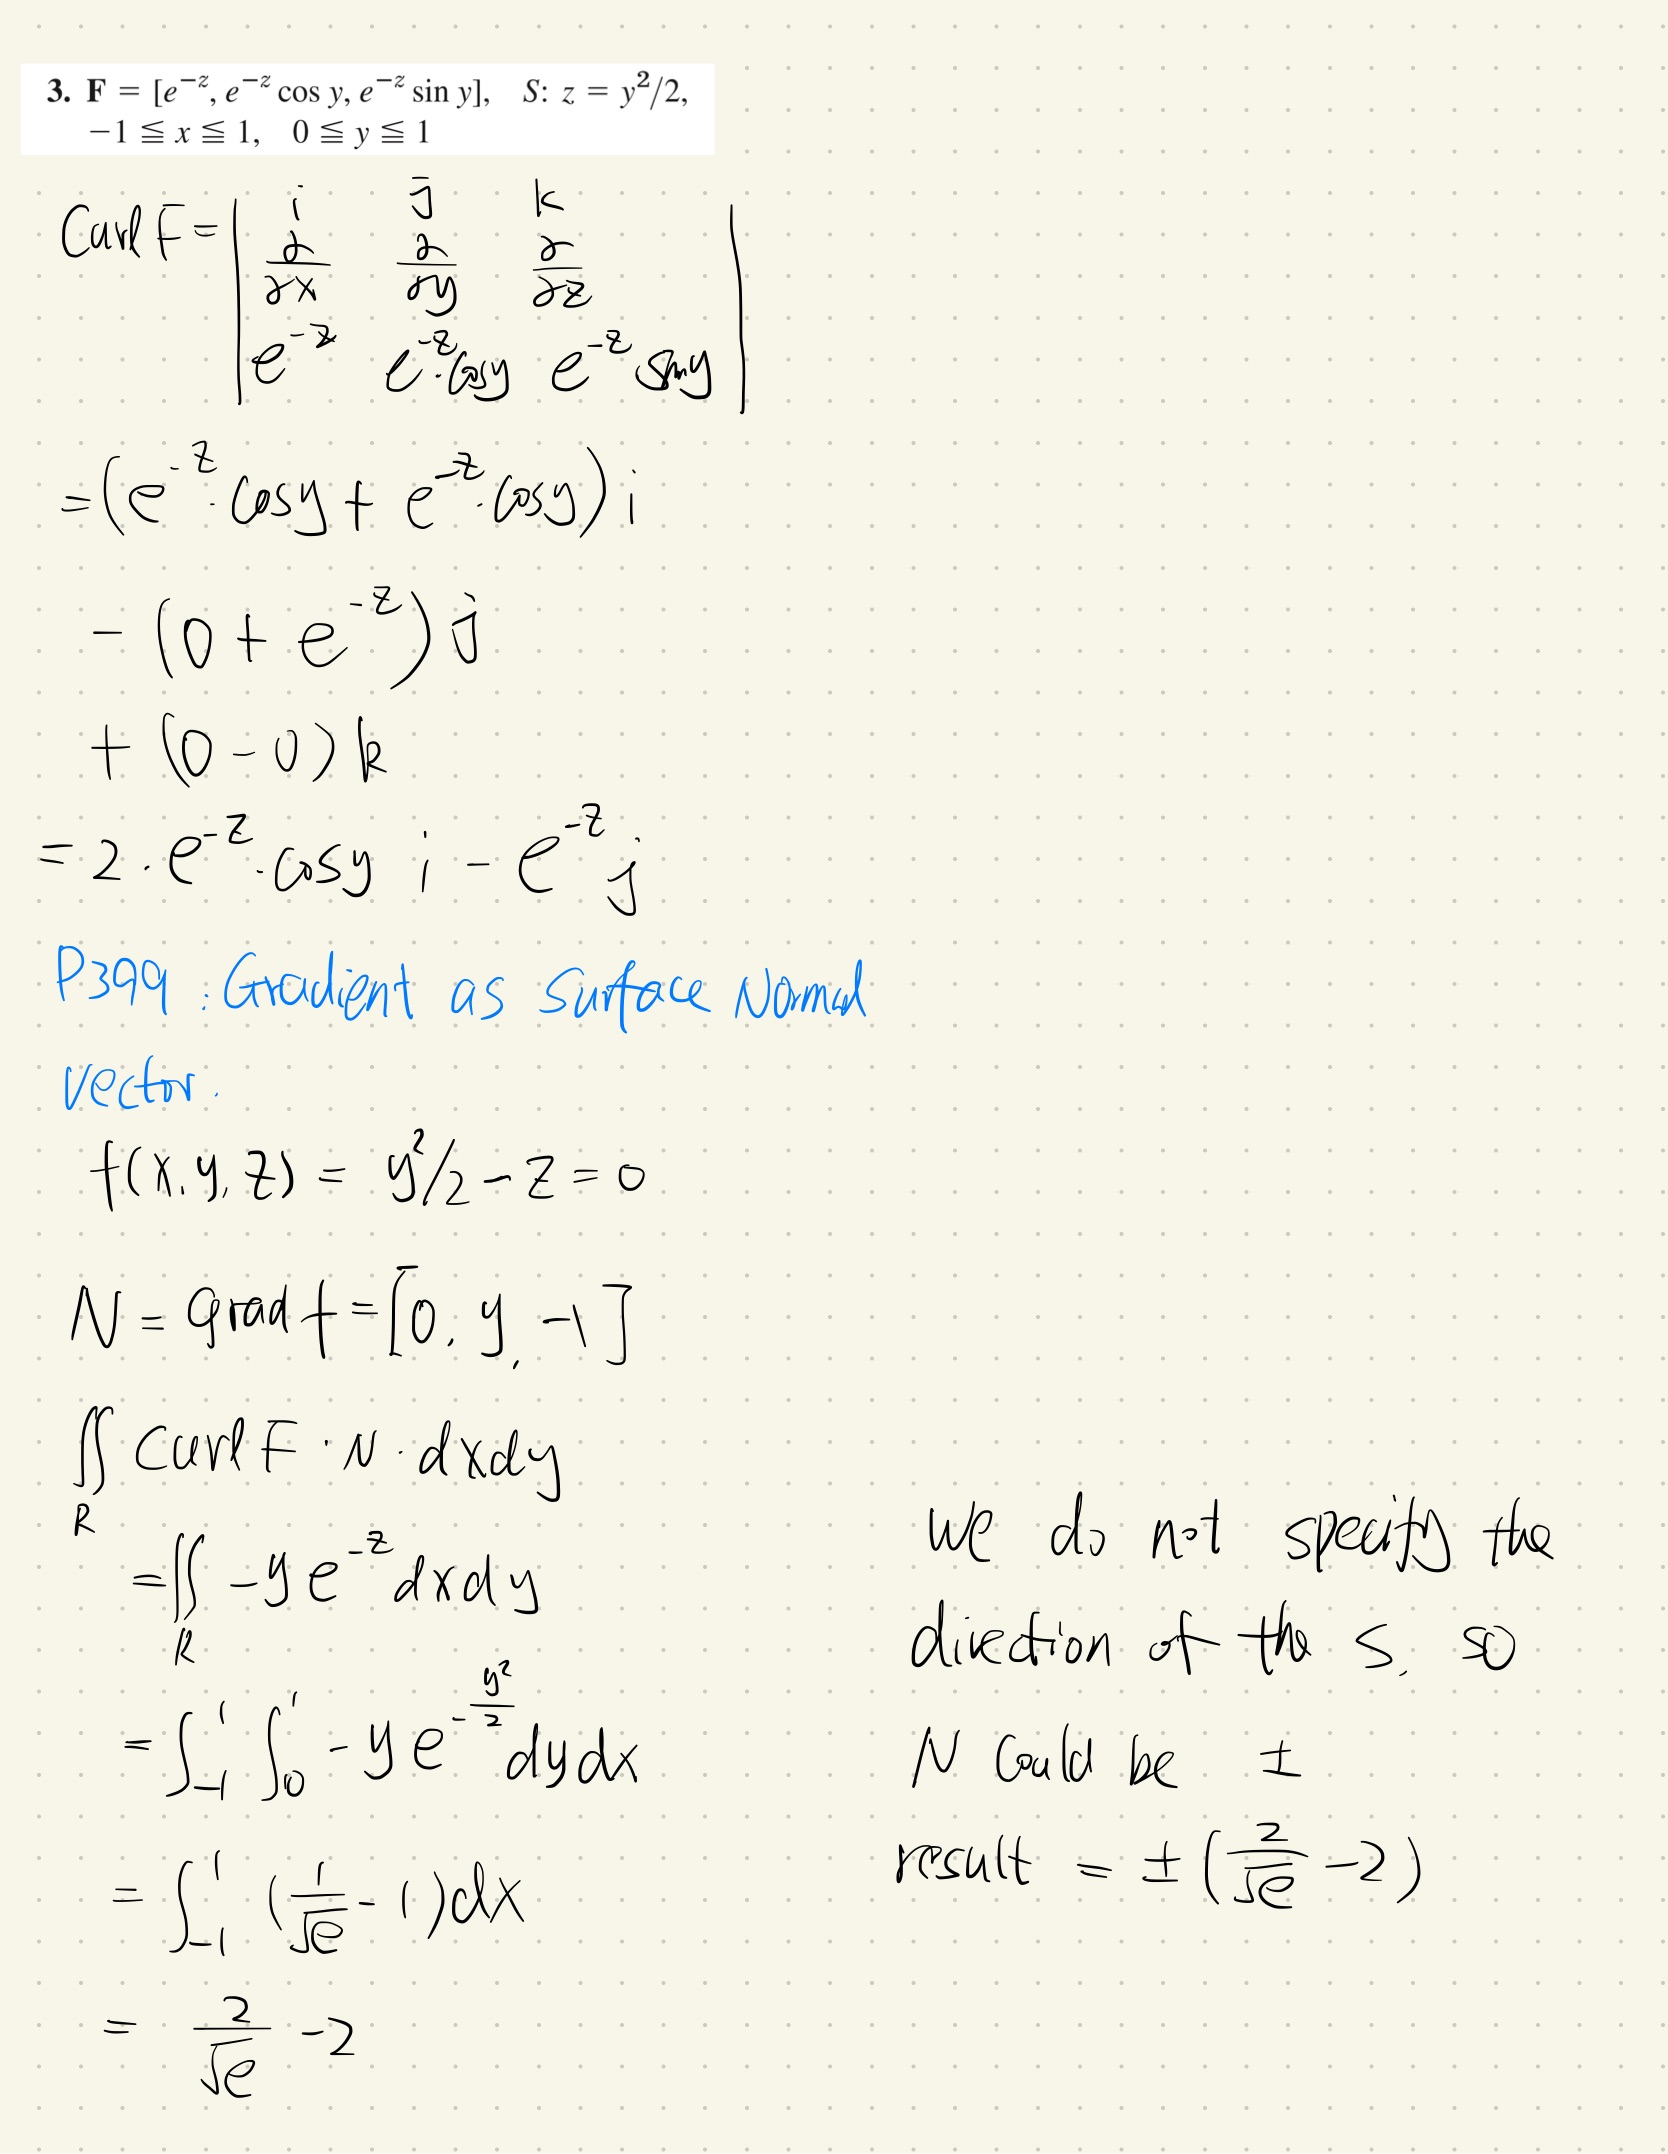 3. F = [e^{-z}, e^{-z} cos y, e^{-z} sin y], S: z = y²/2,
-1 ≦ x ≦ 1, 0 ≦ y ≦ 1
Curl F = | i j k
∂/∂x ∂/∂y ∂/∂z
e^{-z} e^{-z}·cosy e^{-z} siny |
= (e^{-z}·cosy + e^{-z}·cosy) i
- (0 + e^{-z}) j
+ (0 - 0) k
= 2·e^{-z}·cosy i - e^{-z} j
P399: Gradient as Surface Normal
vector.
f(x,y,z) = y²/2 - z = 0
N = grad f = [0, y, -1]
∬_R Curl F · N · dxdy
= ∬_R -y e^{-z} dxdy
= ∫_{-1}^{1} ∫_0^1 -y e^{-y²/2} dydx
= ∫_{-1}^{1} (1/√e - 1) dx
= 2/√e - 2
we do not specify the
direction of the S, so
N could be ±
result = ± (2/√e - 2)